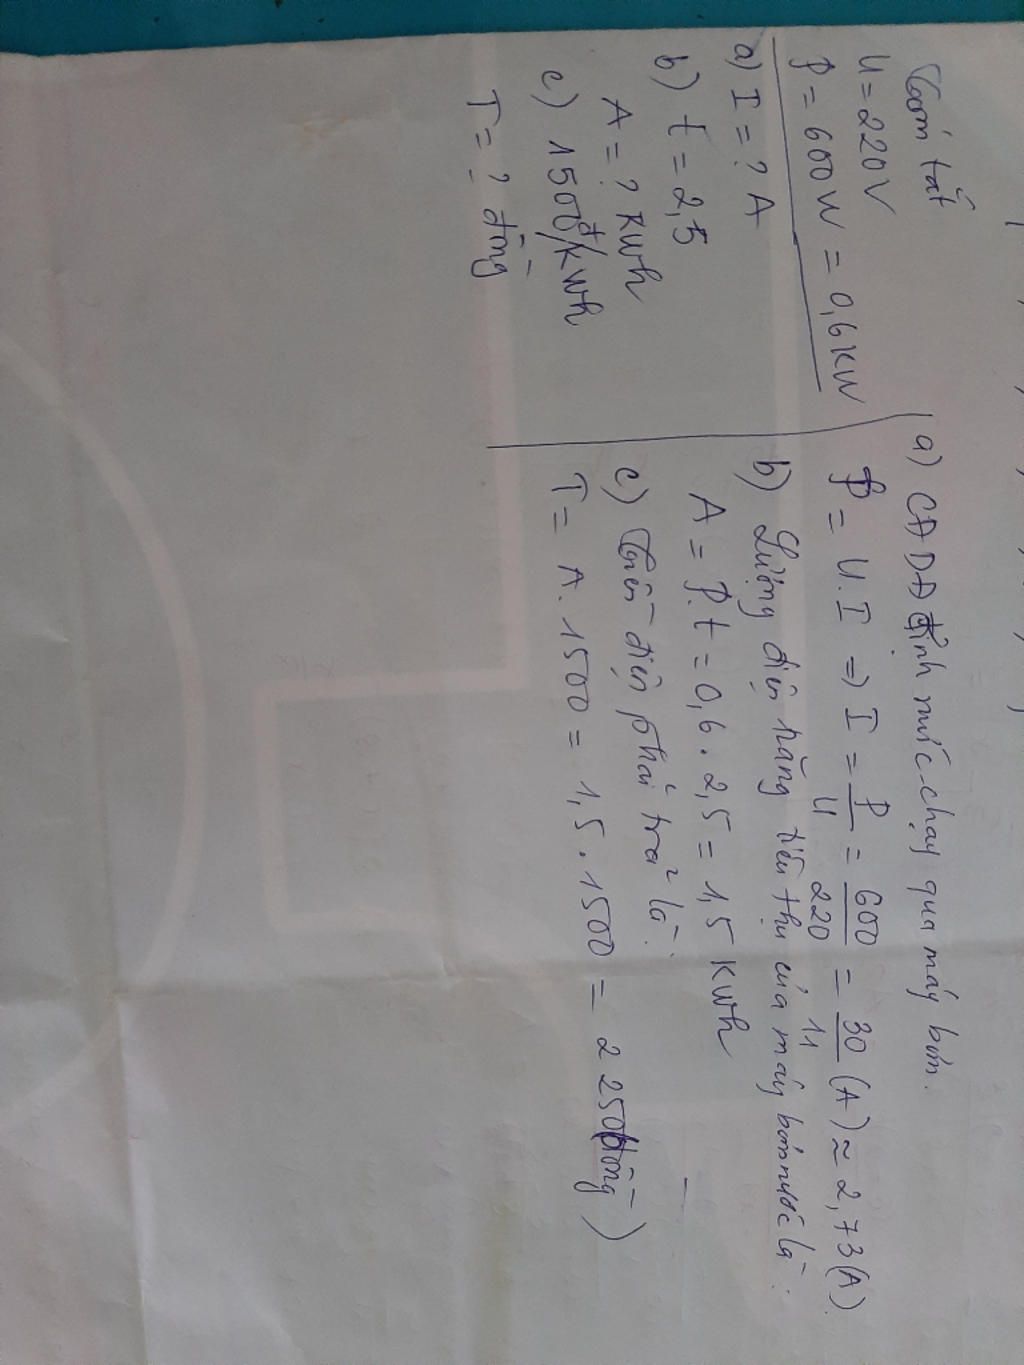 Tóm tắt
U = 220V
P = 600W = 0,6KW
a) I = ? A
b) t = 2,5
A = ? Kwh
c) 1500đ/kwh
T = ? đồng
a) CĐDĐ định mức chạy qua máy bơm.
P = U.I => I = P/U = 600/220 = 30/11 (A) ≈ 2,73 (A).
b) Lượng điện năng tiêu thụ của máy bơm nước là:
A = P.t = 0,6 . 2,5 = 1,5 Kwh
c) Tiền điện phải trả là:
T = A. 1500 = 1,5 . 1500 = 2 250 (đồng)